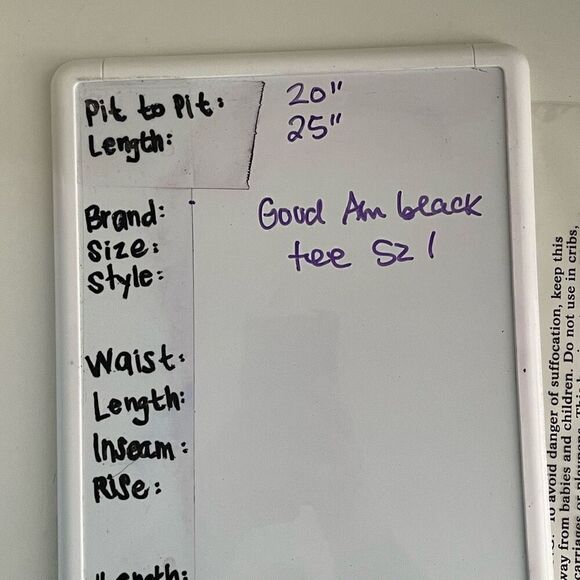 Pit to Pit: 20"
Length: 25"
Brand: Good Am black
Size: tee Sz 1
Style:
Waist:
Length:
Inseam:
Rise:
Length:
To avoid danger of suffocation, keep this
way from babies and children. Do not use in cribs,
carriages or playpens. This